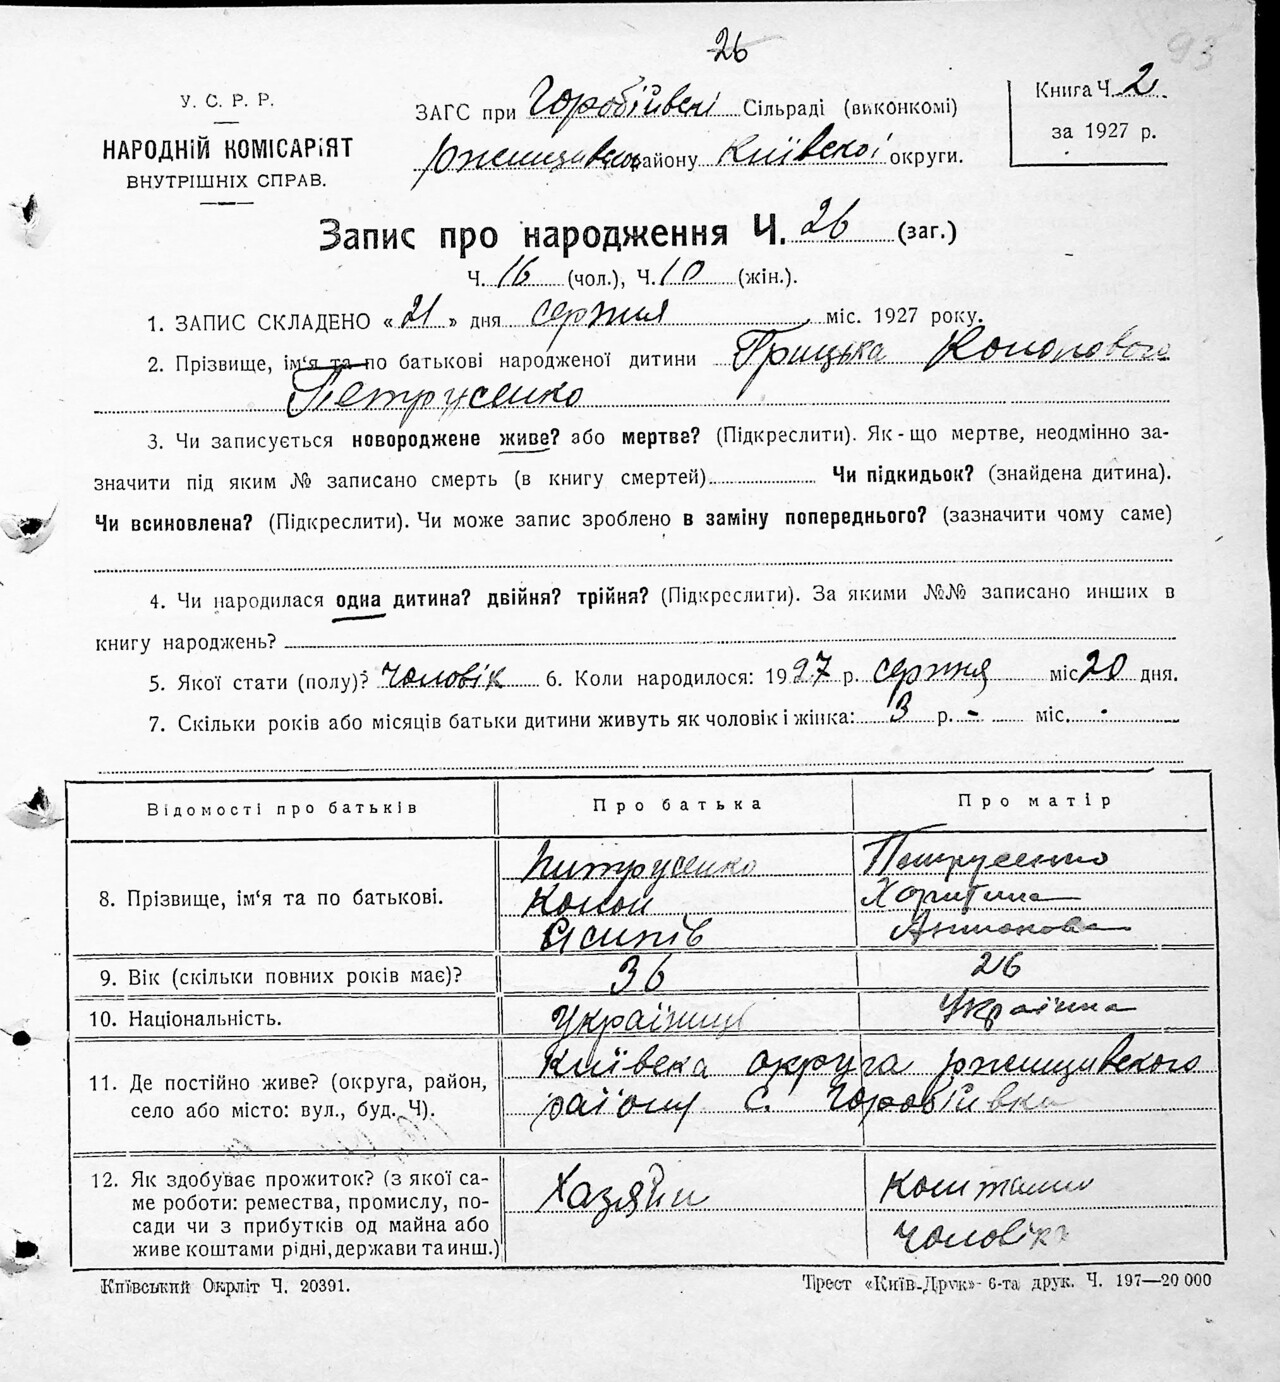 26
93
У. С. Р. Р.
НАРОДНІЙ КОМІСАРІЯТ
ВНУТРІШНІХ СПРАВ.
ЗАГС при Горобіївскі Сільраді (виконкомі)
ржищивськ району Київскої округи.
Книга Ч. 2
за 1927 р.
Запис про народження Ч. 26 (заг.)
Ч. 16 (чол.), Ч. 10 (жін.).
1. ЗАПИС СКЛАДЕНО « 21 » дня серпня міс. 1927 року.
2. Прізвище, ім‘я та по батькові народженої дитини Грицька Кононового
Петрусенко
3. Чи записується новороджене живе? або мертве? (Підкреслити). Як-що мертве, неодмінно за-
значити під яким № записано смерть (в книгу смертей) Чи підкидьок? (знайдена дитина).
Чи всиновлена? (Підкреслити). Чи може запис зроблено в заміну попереднього? (зазначити чому саме)
4. Чи народилася одна дитина? двійня? трійня? (Підкреслити). За якими №№ записано инших в
книгу народжень?
5. Якої стати (полу)? чоловік 6. Коли народилося: 1927 р. серпня міс 20 дня.
7. Скільки років або місяців батьки дитини живуть як чоловік і жінка: 3 р. - міс. -
Відомості про батьків Про батька Про матір
8. Прізвище, ім‘я та по батькові.
Питрусенко Петрусенко
Конон Харитина
Осипів Антонова
9. Вік (скільки повних років має)? 36 26
10. Національність. Українць Українка
11. Де постійно живе? (округа, район,
село або місто: вул., буд. Ч).
Київска округа ржищивского
району с. Горобіївка
12. Як здобуває прожиток? (з якої са-
ме роботи: ремества, промислу, по-
сади чи з прибутків од майна або
живе коштами рідні, держави та инш.)
Хазяйн Коштами
чоловіка
Київський Окрліт Ч. 20391.
Трест «Київ-Друк» 6-та друк. Ч. 197—20 000